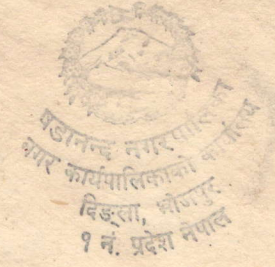 षडानन्द नगरपालिका
नगर कार्यपालिकाको कार्यालय
दिङ्ला, भोजपुर
१ नं. प्रदेश नेपाल